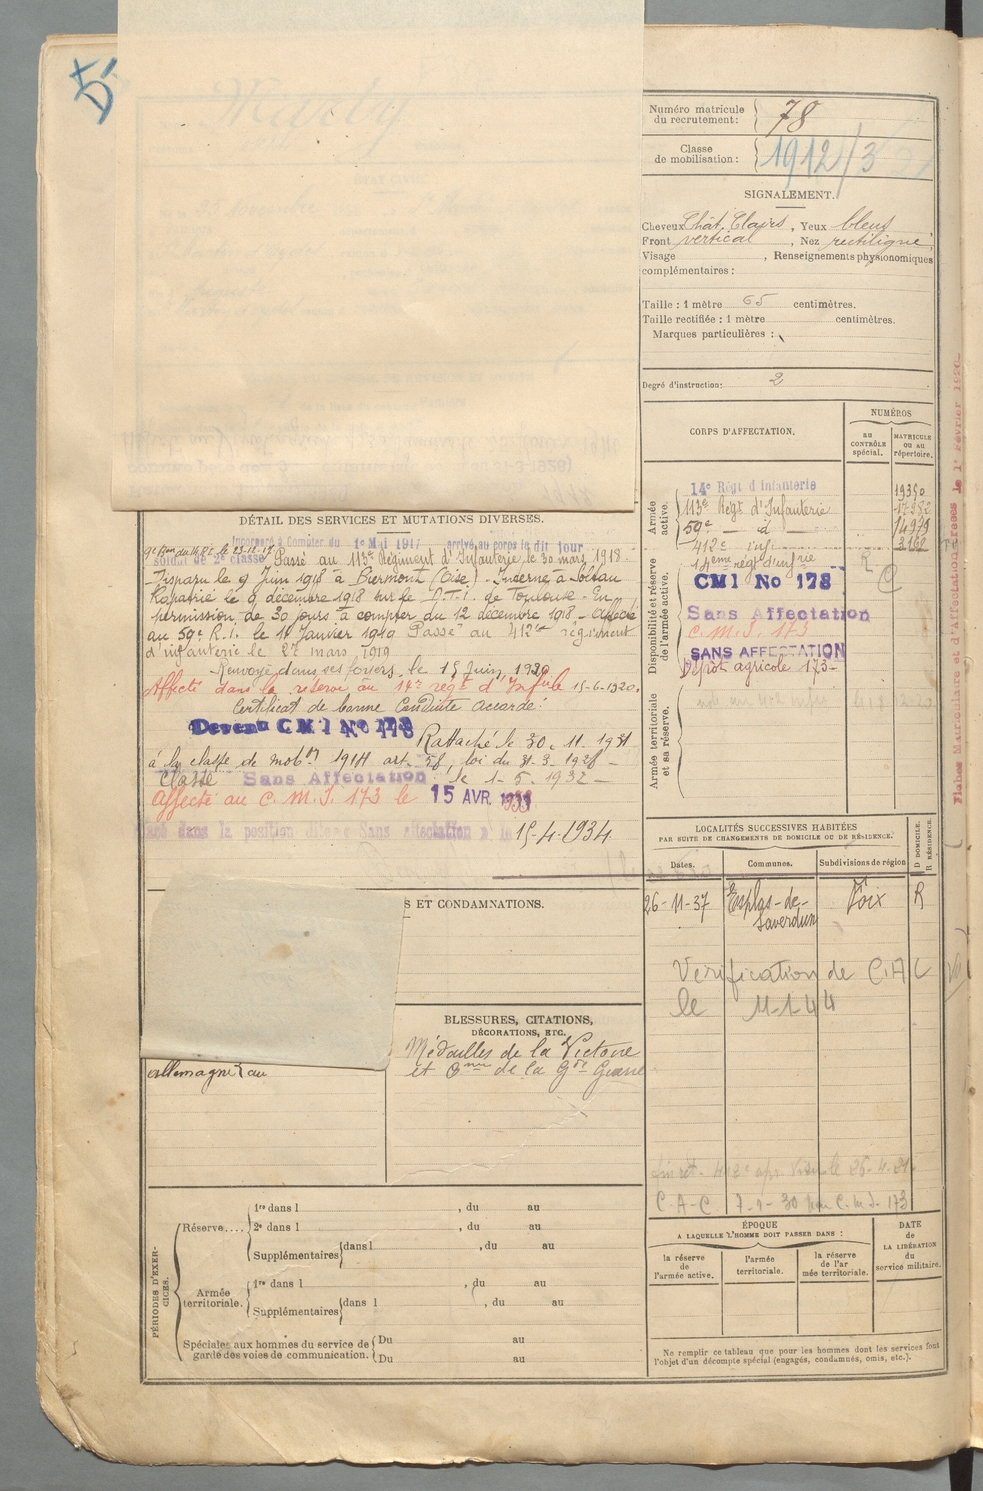 5
Numéro matricule
du recrutement :
78
Classe
de mobilisation :
1912/3
SIGNALEMENT.
Cheveux Chât. Clairs, Yeux bleus
Front vertical, Nez rectiligne
Visage , Renseignements physionomiques
complémentaires :
Taille : 1 mètre 65 centimètres.
Taille rectifiée : 1 mètre centimètres.
Marques particulières :
Degré d'instruction : 2
CORPS D'AFFECTATION.
NUMÉROS
au
CONTRÔLE
spécial.
MATRICULE
ou au
répertoire.
Armée
active.
14e Régt d'Infanterie 19350
113e Régt d'Infanterie
59e — id — 14979
412e inf
Disponibilité et réserve
de l'armée active.
14ème rég d'infrie
CMI No 178
Sans Affectation
C. M. I. 173
SANS AFFECTATION
Dépôt agricole 173-
Armée territoriale
et sa réserve.
DÉTAIL DES SERVICES ET MUTATIONS DIVERSES.
Incorporé à compter du 1er Mai 1917 arrivé au corps le dit jour
soldat de 2e classe Passé au 113e Régiment d'Infanterie, le 30 mars 1918.
Disparu le 9 Juin 1918 à Biermont (Oise). Interné à Soltau
Rapatrié le 9 décembre 1918 sur le D.T.I. de Toulouse. En
permission de 30 jours à compter du 12 décembre 1918 - Affecté
au 59e R.I. le 11 Janvier 1919 Passé au 412e régiment
d'infanterie le 27 mars 1919
Renvoyé dans ses foyers le 15 Juin 1920
Affecté dans la réserve au 14e régt d'Infrie 15-6-1920.
Certificat de bonne Conduite accordé.
Devenu CMI No 178
Rattaché le 30. 11. 1931
à la classe de mobon 1914 art. 58, loi du 31-3-1928 -
Classé Sans Affectation le 1-5-1932 -
Affecté au C. M. I. 173 le 15 AVR. 1933
Placé dans la position dite Sans affectation le 15-4-1934
S ET CONDAMNATIONS.
BLESSURES, CITATIONS,
DÉCORATIONS, ETC.
Médailles de la Victoire
et Cme de la Gde Guerre
allemagne au
LOCALITÉS SUCCESSIVES HABITÉES
PAR SUITE DE CHANGEMENTS DE DOMICILE OU DE RÉSIDENCE.
D DOMICILE.
R RÉSIDENCE.
Dates. Communes. Subdivisions de région
26-11-37 Esplas-de-Saverdun Foix R
Vérification de C.A C
le 11-1-44
C.A-C 7-1-30 C.M.I. 173
PÉRIODES D'EXER-
CICES.
Réserve....
1re dans l , du au
2e dans l , du au
Supplémentaires dans l , du au
Armée
territoriale.
1re dans l , du au
Supplémentaires dans l , du au
Spéciales aux hommes du service de
garde des voies de communication.
Du au
Du au
ÉPOQUE
A LAQUELLE L'HOMME DOIT PASSER DANS :
la réserve
de
l'armée active.
l'armée
territoriale.
la réserve
de l'ar
mée territoriale.
DATE
de
LA LIBÉRATION
du
service militaire.
Ne remplir ce tableau que pour les hommes dont les services font
l'objet d'un décompte spécial (engagés, condamnés, omis, etc.).
Fiches Matriculaire et d'Affectation dressées le 1er Février 1920